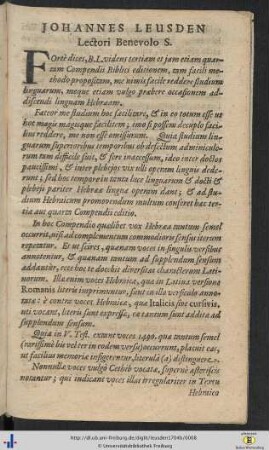 JOHANNES LEUSDEN
Lectori Benevolo S.
FOrtè dices, B. L. videns tertiam et jam etiam quar-
tam Compendii Biblici editionem, tam facili me-
thodo propositam, me nimis facile reddere studium
linguarum, meque etiam vulgo præbere occasionem ad-
discendi linguam Hebræam.
Fateor me studium hoc facilitare, & in eo totum esse ut
hoc magis magisque facilitem; imo si possem decuplo facilius
reddere, me non esse omissurum. Quia studium lin-
guarum superioribus temporibus ob defectum adminiculo-
rum tum difficile fuit, & fere inaccessum, ideo inter doctos
paucissimi, & inter plebejos vix ulli operam linguis dede-
runt; sed hoc tempore in tanta luce linguarum & docti &
plebeji pariter Hebrææ linguæ operam dant; & ad stu-
dium Hebraicum promovendum multum conferet hæc ter-
tia aut quarta Compendii editio.
In hoc Compendio quælibet vox Hebræa tantum semel
occurrit, nisi ad complementum commodioris sensus iterum
repetatur. Et ut scires, quanam voces in singulis versibus
annotentur, & quanam tantum ad supplendum sensum
addantur, ecce hoc te docebit diversitas characterum Lati-
norum. Illæ enim voces Hebraicæ, quæ in Latina versione
Romanis literis imprimuntur, sunt in illo versiculo anno-
tatæ: è contra voces Hebraicæ, quæ Italicis sive cursivis,
uti vocant, literis sunt expressæ, eæ tantum sunt additæ ad
supplendum sensum.
Quia in V. Test. extant voces 1490, quæ tantum semel
(rarissimè bis vel ter in eodem versu) occurrunt, placuit eas,
ut facilius memoriæ infigerentur, literulâ (a) distinguere.
Nonnullæ voces vulgò Cethib vocatæ, supernè asteriscis
notantur; qui indicant voces illas irregulariter in Textu
Hebraico